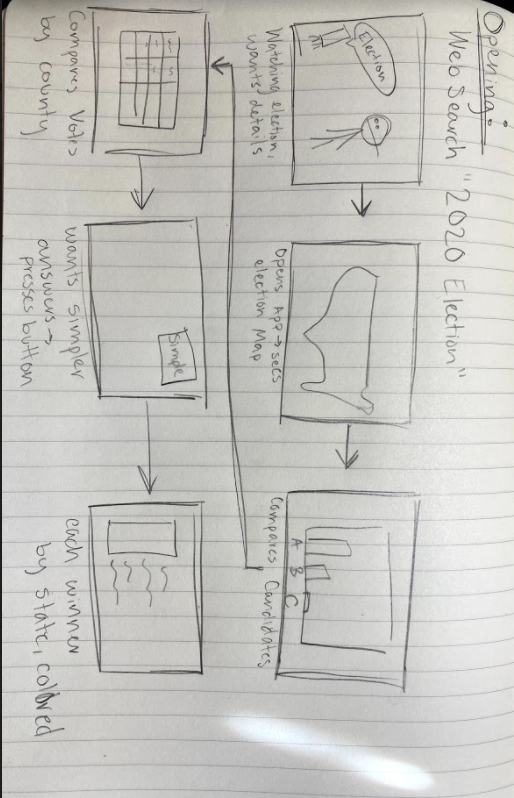 Opening:
Web Search "2020 Election"
Election
Watching election,
wants details
Opens App → sees
election Map
A B C
Compares Candidates
Compares Votes
by county
Simple
wants simpler
answers →
presses button
each winner
by state, colored